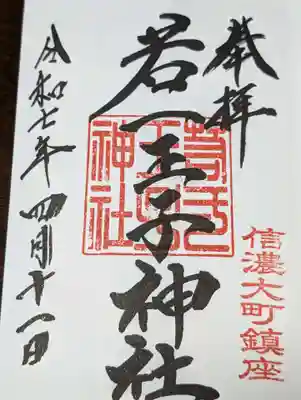 奉拝
信濃大町鎮座
若一王子神社
若一王子神社
令和七年四月十一日